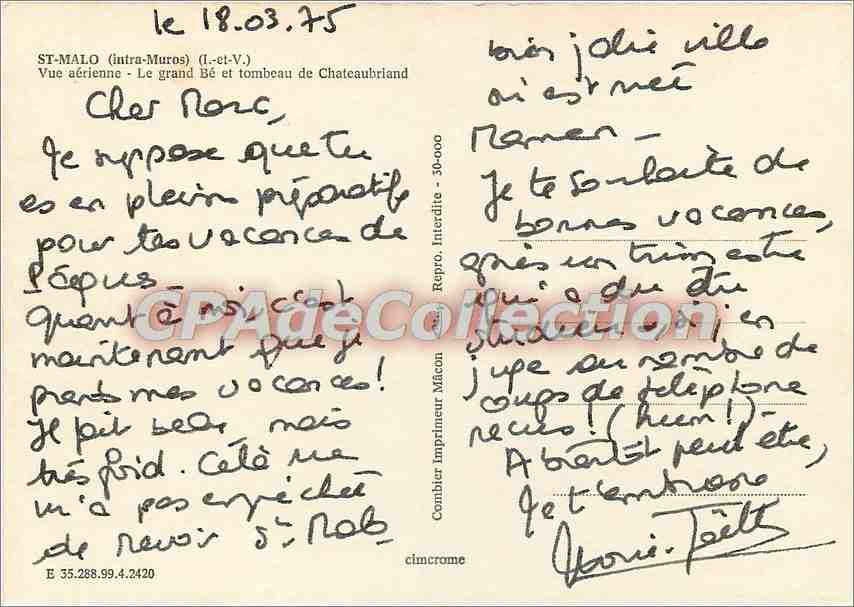 le 18.03.75
ST-MALO (intra-Muros) (I.-et-V.)
Vue aérienne - Le grand Bé et tombeau de Chateaubriand
Cher Marc,
Je suppose que tu
es en pleins préparatifs
pour tes vacances de
Pâques -
quant à moi, c'est
maintenant que je
prends mes vacances !
Il fait beau, mais
très froid. Cela ne
m'a pas empêché
de revoir St Malo
E 35.288.99.4.2420
Combier Imprimeur Mâcon Repro. Interdite - 30-000
cimcrome
très jolie ville
où est née
Maman -
Je te souhaite de
bonnes vacances,
après un trimestre
qui a du être
studieux, si j'en
juge au nombre de
coups de téléphone
reçus ! (hum !)
A bientôt peut être,
Je t'embrasse
CPAdeCollection